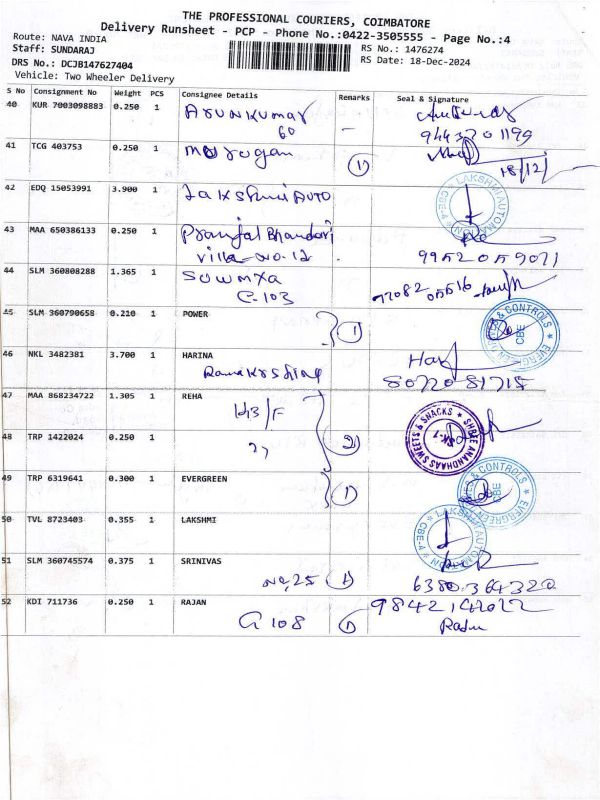 THE PROFESSIONAL COURIERS, COIMBATORE
Delivery Runsheet - PCP - Phone No.:0422-3505555 - Page No.:4
Route: NAVA INDIA
Staff: SUNDARAJ
RS No.: 1476274
DRS No.: DCJB147627404
RS Date: 18-Dec-2024
Vehicle: Two Wheeler Delivery
S No Consignment No Weight PCS Consignee Details Remarks Seal & Signature
40 KUR 7003098883 0.250 1 Arunkumar
60 —
9443701199
41 TCG 403753 0.250 1 Murugan
1) 18/12/
42 EDQ 15053991 3.900 1 Lakshmi AUTO
LAKSHMI AUTOMATION CBE-4
43 MAA 650386133 0.250 1 Pranjal Bhandari
Villa-no-12. 9952059071
44 SLM 360808288 1.365 1 SOWMYA
G-103 77082 05516
45 SLM 360790658 0.210 1 POWER
1) & CONTROLS CBE EVERGREEN
46 NKL 3482381 3.700 1 HARINA
Ramakrishna
80720 81715
47 MAA 868234722 1.305 1 REHA
143/F
SHREE ANANDHAAS SWEETS & SNACKS
48 TRP 1422024 0.250 1
" 2)
49 TRP 6319641 0.300 1 EVERGREEN
1) & CONTROLS CBE EVERGREEN
50 TVL 8723403 0.355 1 LAKSHMI
LAKSHMI AUTOMATION CBE-4
51 SLM 360745574 0.375 1 SRINIVAS
No, 25 1) 6380364320
52 KDI 711736 0.250 1 RAJAN
9842142022
G 108 1)